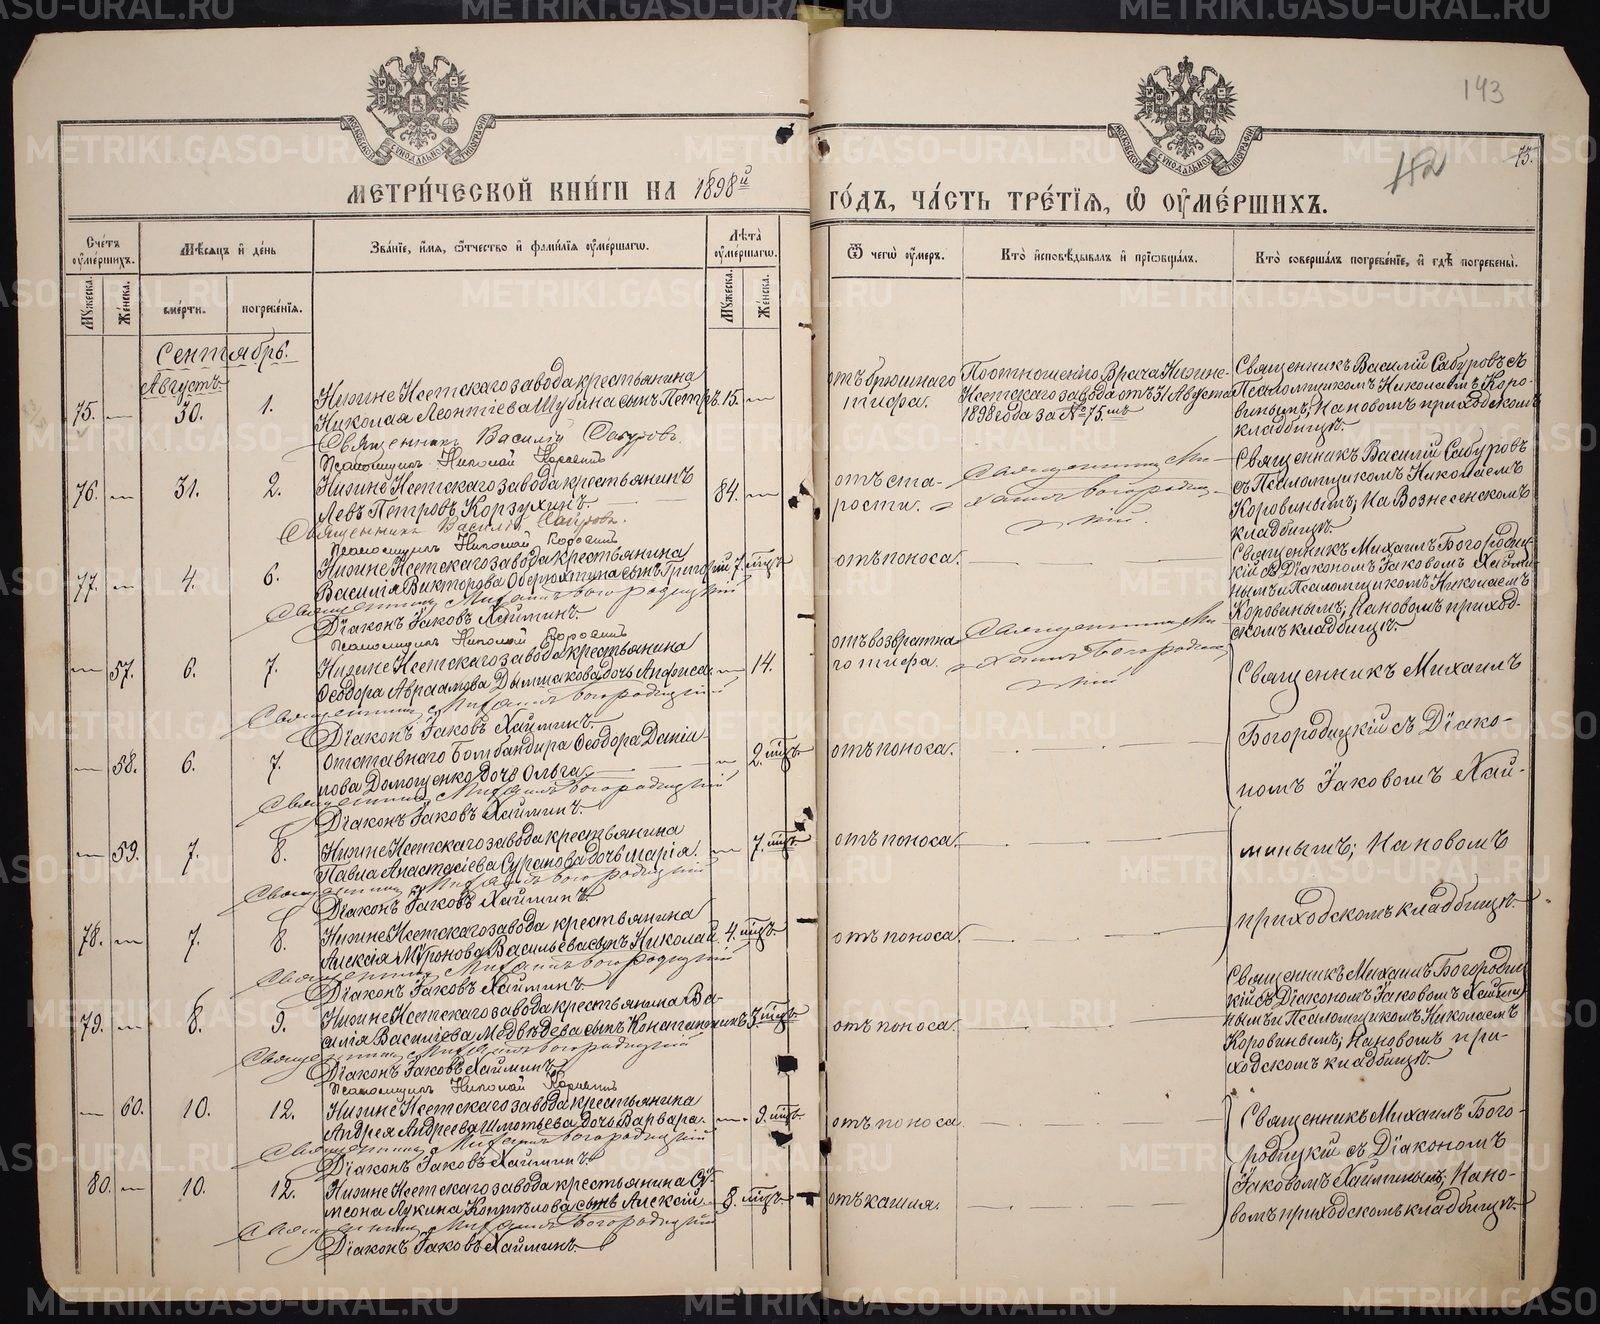 METRIKI.GASO-URAL.RU
143
73.
МЕТРИ́ЧЕСКОЙ КНИ́ГИ НА 1898й ГО́ДЪ, ЧА́СТЬ ТРЕ́ТІѦ, Ѡ ОУМЕ́РШИХЪ.
Сче́тъ оумершихъ.
Мужеска.
Женска.
Мѣсяцъ и день
смерти.
погребенія.
Званіе, имя, отчество и фамилія оумершаго.
Лѣта оумершаго.
Мужеска.
Женска.
Ѿ чего оумеръ.
Кто исповѣдывалъ и пріобщалъ.
Кто совершалъ погребеніе, и гдѣ погребены.
Сентябрь.
Августъ.
75. — 30. 1.
Нижне Исетскаго завода крестьянина
Николая Леонтіева Шубина сынъ Петръ. 15. —
Священникъ Василій Сабуровъ
Псаломщикъ Николай Коровинъ
отъ брюшнаго
тифа.
По отношенію Врача Нижне-
Исетскаго завода отъ 31 Августа
1898 года за № 75мъ
Священникъ Василій Сабуровъ съ
Псаломщикомъ Николаемъ Коро-
винымъ; На новомъ приходскомъ
кладбищѣ.
76. — 31. 2.
Нижне Исетскаго завода крестьянинъ
Левъ Петровъ Корзухинъ. 84. —
Священникъ Василій Сабуровъ.
Псаломщикъ Николай Коровинъ
отъ ста-
рости.
Священникъ Ми-
хаилъ Богородиц-
кій.
Священникъ Василій Сабуровъ
съ Псаломщикомъ Николаемъ
Коровинымъ; На Вознесенскомъ
кладбищѣ.
77. — 4. 6.
Нижне Исетскаго завода крестьянина
Василія Викторова Оберюхтина сынъ Григорій 7. мцъ
Священникъ Михаилъ Богородицкій
Діаконъ Іаковъ Хайминъ.
Псаломщикъ Николай Коровинъ
отъ поноса.
Священникъ Михаилъ Богородиц-
кій съ Діакономъ Іаковомъ Хайми-
нымъ и Псаломщикомъ Николаемъ
Коровинымъ; На новомъ приход-
скомъ кладбищѣ.
— 57. 6. 7.
Нижне Исетскаго завода крестьянина
Ѳеодора Авраамова Дымшакова дочь Анфиса. — 14.
Священникъ Михаилъ Богородицкій
Діаконъ Іаковъ Хайминъ.
отъ возвратна-
го тифа.
Священникъ Ми-
хаилъ Богородиц-
кій
Священникъ Михаилъ
Богородицкій съ Діако-
номъ Іаковомъ Хай-
минымъ; На новомъ
приходскомъ кладбищѣ.
— 58. 6. 7.
Отставнаго Бомбандира Ѳеодора Данiи-
лова Домощенко дочь Ольга. — 2. мцъ
Священникъ Михаилъ Богородицкій
Діаконъ Іаковъ Хайминъ.
отъ поноса.
— 59. 7. 8.
Нижне Исетскаго завода крестьянина
Павла Анастасіева Суханова дочь Марія. — 7. мцъ
Священникъ Михаилъ Богородицкій
Діаконъ Іаковъ Хайминъ.
отъ поноса.
78. — 7. 8.
Нижне Исетскаго завода крестьянина
Алексія Миронова Васильева сынъ Николай 4. мцъ.
Священникъ Михаилъ Богородицкій
Діаконъ Іаковъ Хайминъ.
отъ поноса.
79. — 8. 9.
Нижне Исетскаго завода крестьянина Ва-
силія Василіева Медвѣдева сынъ Константинъ 3 мцъ
Священникъ Михаилъ Богородицкій
Діаконъ Іаковъ Хайминъ.
Псаломщикъ Николай Коровинъ
отъ поноса.
Священникъ Михаилъ Богородиц-
кій съ Діакономъ Іаковомъ Хайми-
нымъ и Псаломщикомъ Николаемъ
Коровинымъ; На новомъ при-
ходскомъ кладбищѣ.
— 60. 10. 12.
Нижне Исетскаго завода крестьянина
Андрея Андреева дочь Варвара. — 9. мцъ.
Священникъ Михаилъ Богородицкій
Діаконъ Іаковъ Хайминъ.
отъ поноса
Священникъ Михаилъ Бого-
родицкій съ Діакономъ
Іаковомъ Хайминымъ; На но-
вомъ приходскомъ кладбищѣ.
80. — 10. 12.
Нижне Исетскаго завода крестьянина Си-
меона Лукина Коптѣлова сынъ Алексій 8. мцъ —
Священникъ Михаилъ Богородицкій
Діаконъ Іаковъ Хайминъ.
отъ кашля.